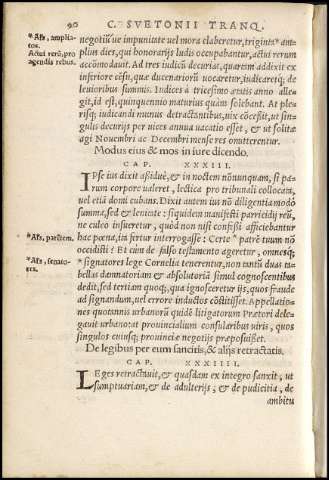 90
C. SVETONII TRANQ.
*Als, amplia-
tos.
Actui rerũ, pro
agendis rebus.
negotiũ ue impunitate uel mora elaberetur, triginta* am-
plius dies, qui honorarijs ludis occupabantur, actui rerum
accõmodauit. Ad tres iudicũ decurias, quartem addixit ex
inferiore cẽsu, quæ ducenariorũ uocaretur, iudicaretq; de
leuioribus summis. Iudices à tricesimo ætatis anno alle-
git, id est, quinquennio maturius quàm solebant. At ple-
risq; iudicandi munus detractantibus, uix cõcessit, ut sin-
gulis decurijs per uices annua uacatio esset, & ut solitæ
agi Nouembri ac Decembri mense res omitterentur.
Modus eius & mos in iure dicendo.
CAP. XXXIII.
IPse ius dixit aßiduè, & in noctem nõnunquam, si pa-
rum corpore ualeret, lectica pro tribunali collocata,
uel etiã domi cubans. Dixit autem ius nõ diligentia modò
summa, sed & lenitate: siquidem manifesti parricidij reũ,
ne culeo insueretur, quòd non nisi confeßi afficiebantur
*Als, parẽtem.
hac pœna, ita fertur interrogasse: Certe *patrẽ tuum nõ
occidisti? Et cùm de falso testamento ageretur, omnesq;
*Als, senato-
res.
*signatores lege Cornelia tenerentur, non tantũ duas ta-
bellas damnatoriam & absolutoriã simul cognoscentibus
dedit, sed tertiam quoq;, qua ignosceretur ijs, quos fraude
ad signandum, uel errore inductos cõstitisset. Appellatio-
nes quotannis urbanorũ quidẽ litigatorum Prætori dele-
gauit urbano: at prouincialium consularibus uiris, quos
singulos cuiusq; prouinciæ negotijs præposuißet.
De legibus per eum sancitis, & alijs retractatis.
CAP. XXXIIII.
LEges retractauit, & quasdam ex integro sanxit, ut
sumptuariam, & de adulterijs, & de pudicitia, de
ambitu